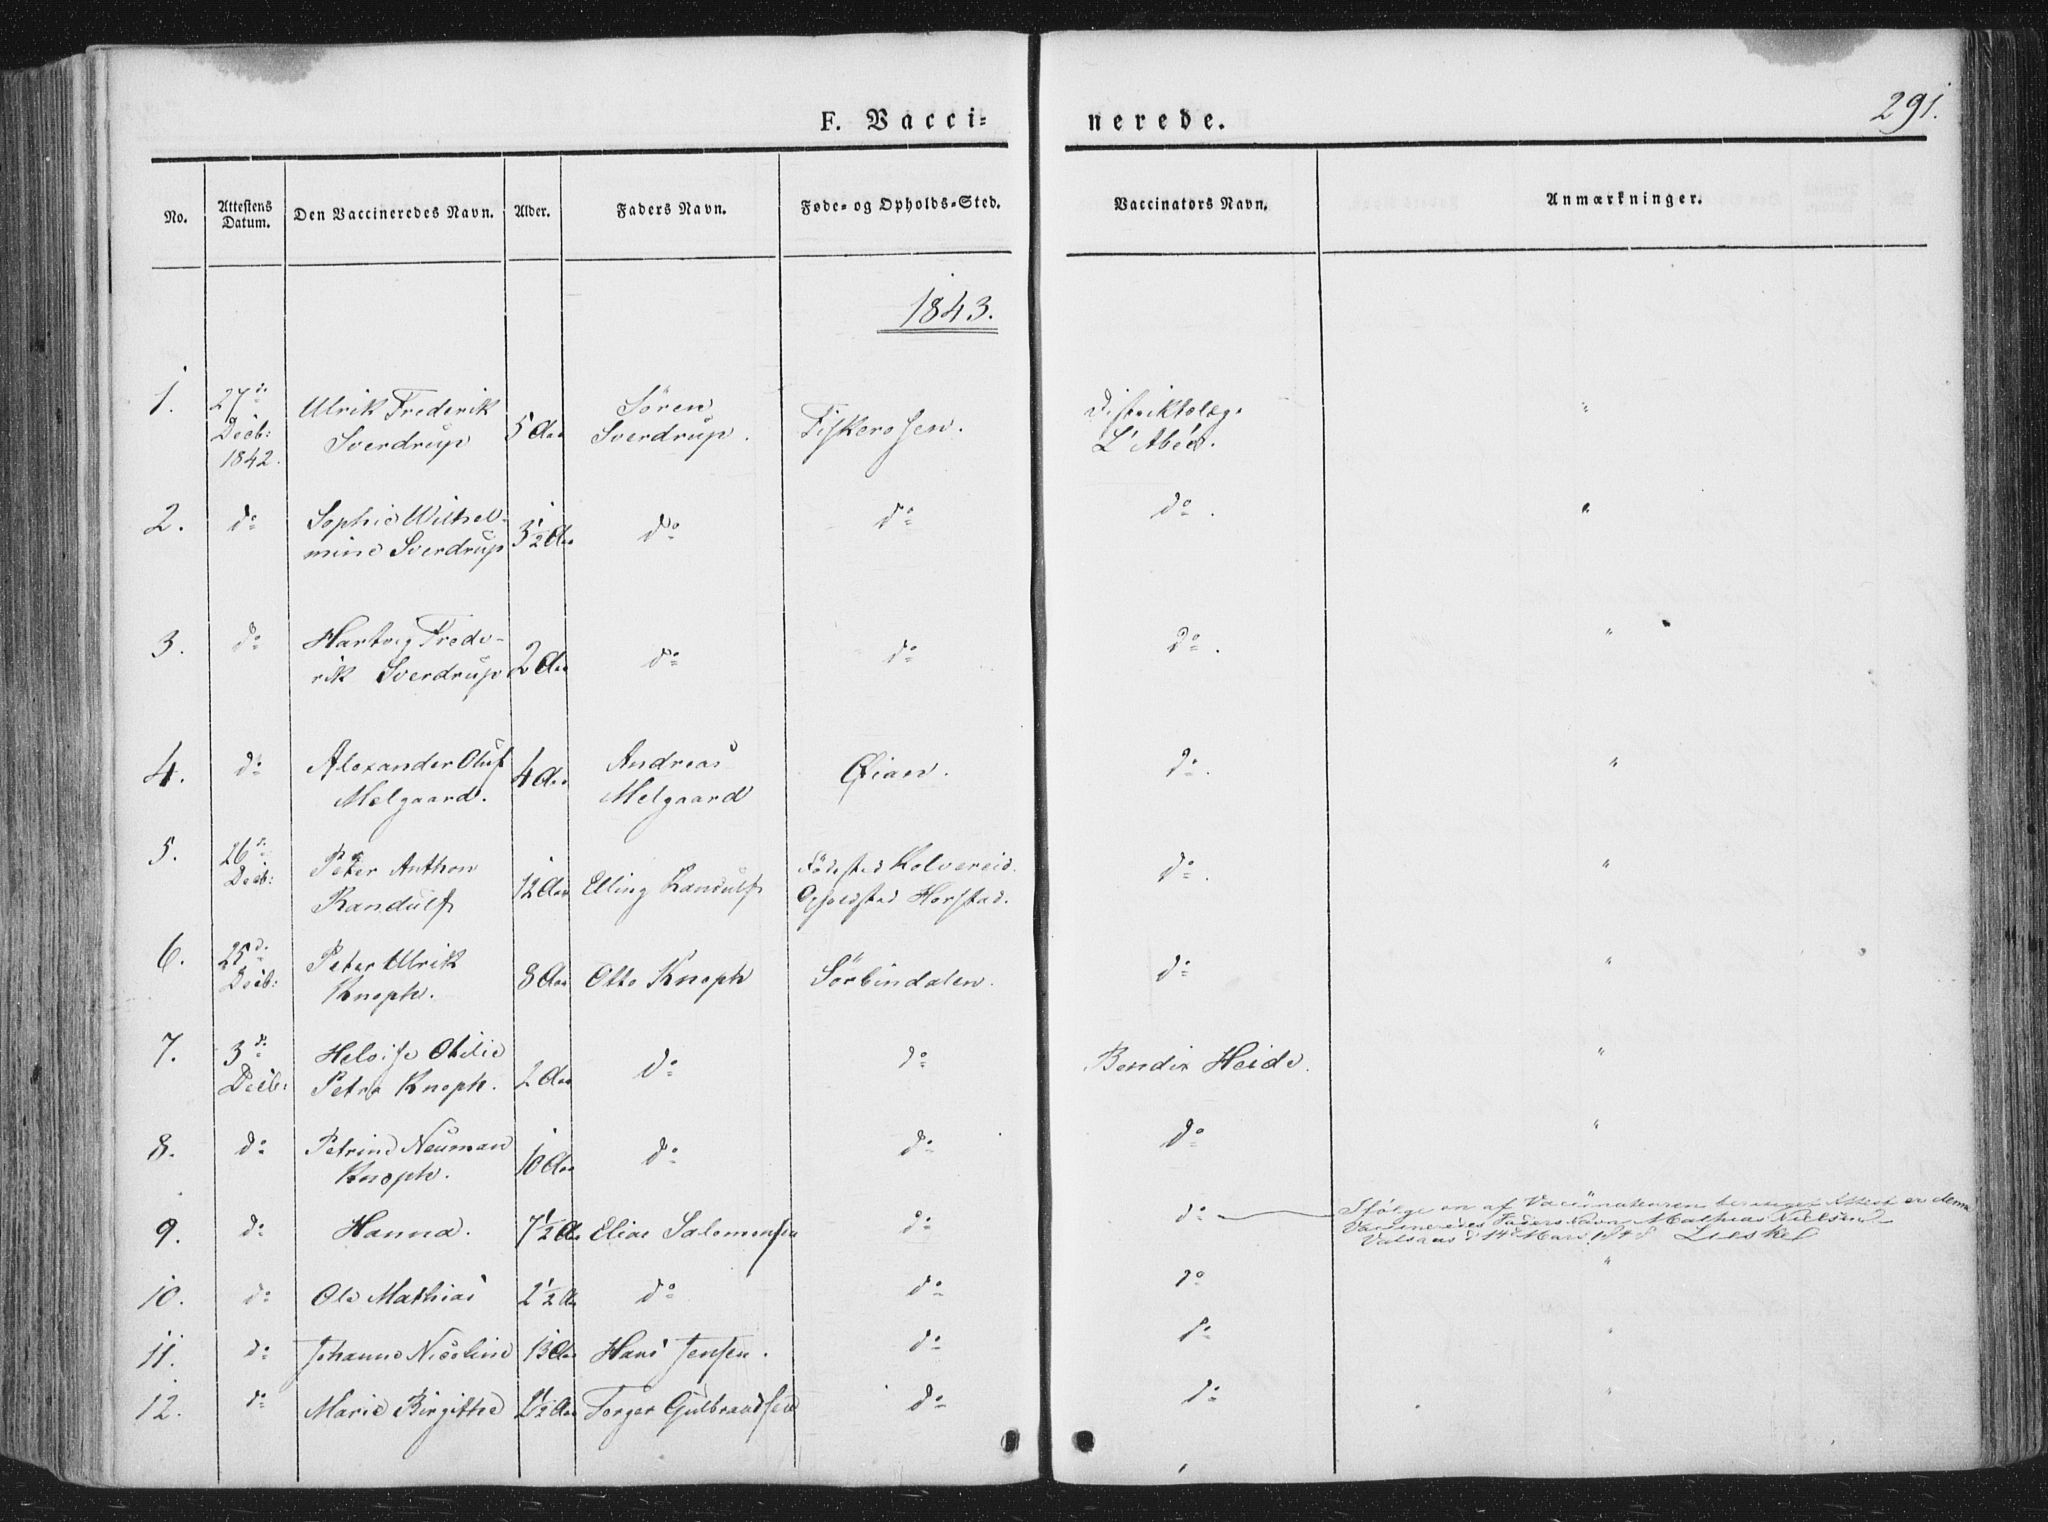 291.
F. Vacci= nerede.
No. Attestens Datum. Den Vaccineredes Navn. Alder. Faders Navn. Føde- og Opholds-Sted. Vaccinators Navn. Anmærkninger.
1843.
1. 27de Decb: 1842. Ulrik Frederik Sverdrup 5 Aar Sören Sverdrup. Distriktslæge L'Abée. "
2. do Sophie Wilhelmine Sverdrup 3½ Aar do do do. "
3. do Hartvig Frederik Sverdrup 2 Aar do do do. "
4. do Alexander Oluf Melgaard. 4 Aar Andreas Melgaard Øian. do. "
5. 26de Decb: Peter Anthon Randulf 12 Aar Elling Randulf Födested Kolvereid. Opholdsted Horstad. do. "
6. 25de Decb: Peter Ulrik Knoph. 8 Aar Otto Knoph Sörbindalen. do "
7. 3de Decb: Heloise Otilie Petra Knoph. 2 Aar do do Bendix Heide. "
8. do Petrine Neuman Knoph. 10 Aar do do do "
9. do Hanna. 7½ A Elias Salomonsen do do Ifølge en af Vaccinateuren bevidnet Attest er denne
Vaccineredes Faders Navn Mathias Nielsen
14de Marts 1848
10. do Ole Mathias 2½ A do do do "
11. do Johanne Nicoline 13 Aar Hans Jensen. do do "
12. do Marie Birgitthe 2½ Aar Torger Gulbrandsen do do "